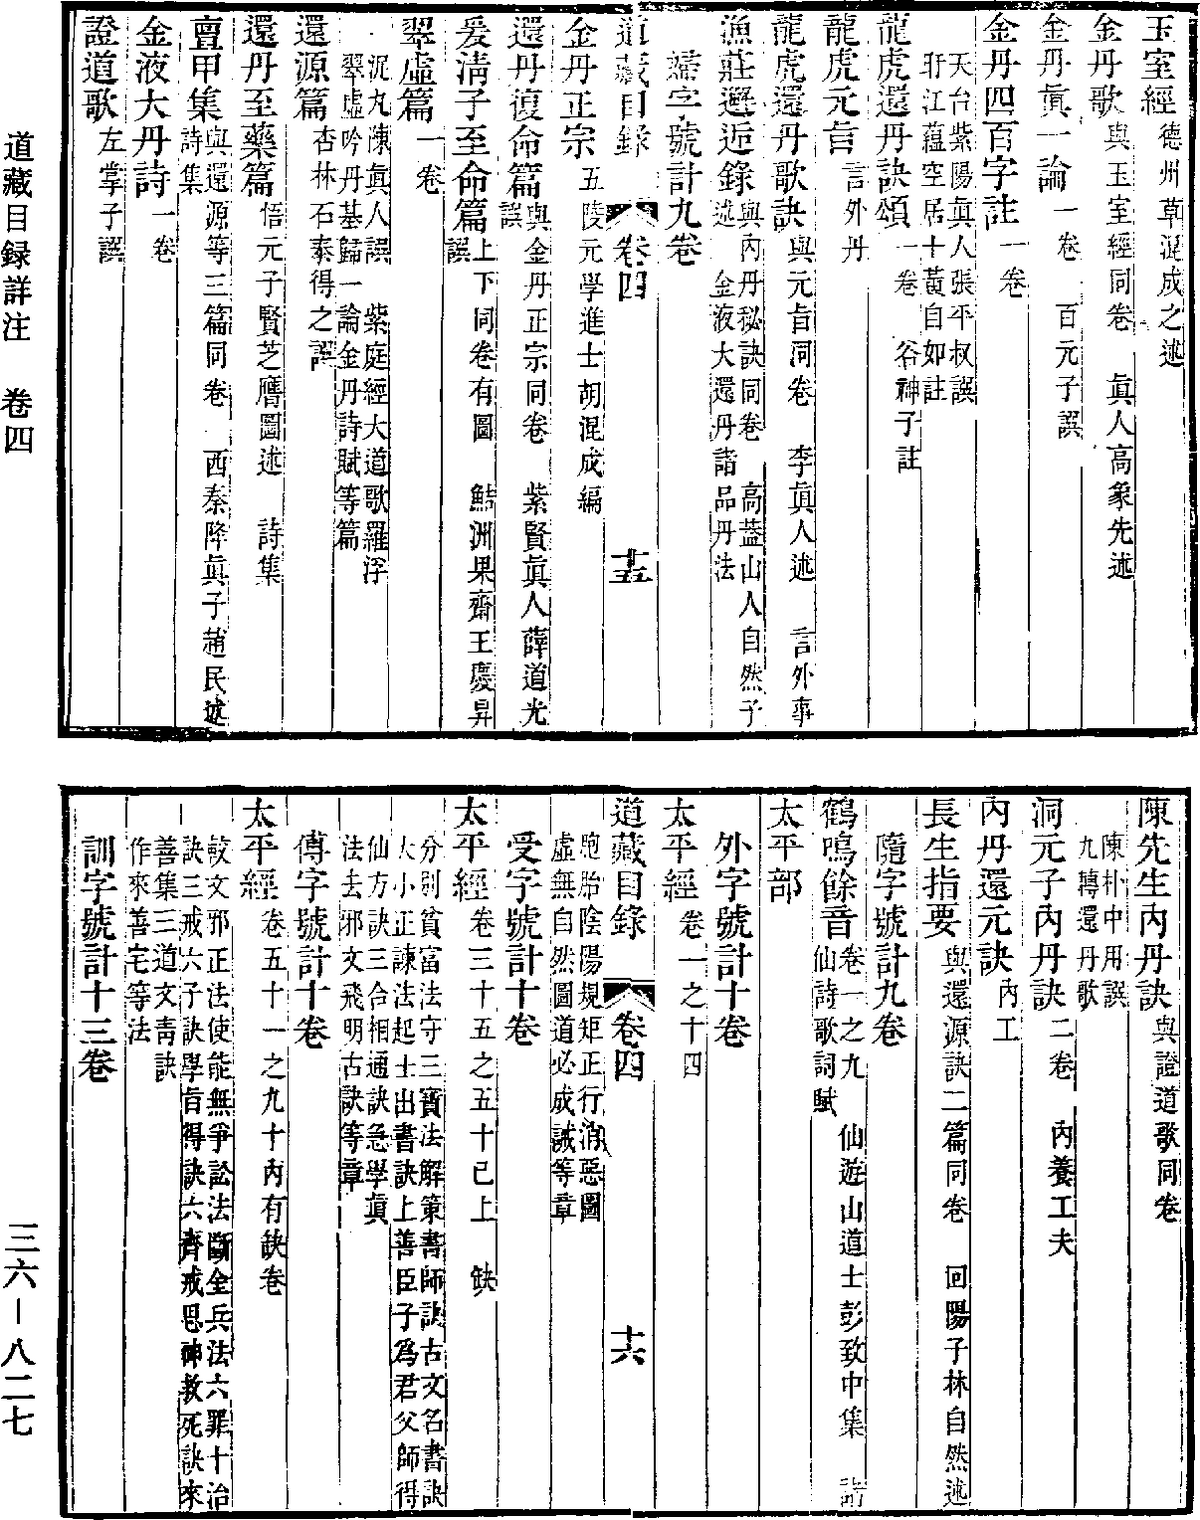 道藏目録詳注　卷四
三六－八二七
玉室經　德州草混成之述
金丹歌　與玉室經同卷　眞人高象先述
金丹眞一論　一卷　百元子譔
金丹四百字註　一卷
天台紫陽眞人張平叔譔
盱江蘊空居士黃自如註
龍虎還丹訣頌　一卷　谷神子註
龍虎元旨　言外丹
龍虎還丹歌訣　與元旨同卷　李眞人述　言外事
漁莊邂逅錄　與內丹秘訣同卷　高蓋山人自然子
述　金液大還丹諸品丹法
婦字號計九卷
道藏目錄　卷四　十五
金丹正宗　五陵元學進士胡混成編
還丹復命篇　與金丹正宗同卷　紫賢眞人薛道光
譔
爰清子至命篇　上下同卷有圖　鮚洲果齋王慶昇
譔
翠虛篇　一卷
泥丸陳眞人譔　紫庭經大道歌羅浮
翠虛吟丹基歸一論金丹詩賦等篇
還源篇　杏林石泰得之譔
還丹至藥篇　悟元子賢芝膺圖述　詩集
亶甲集　與還源等三篇同卷　西秦降眞子趙民述
詩集
金液大丹詩　一卷
證道歌　左掌子譔
陳先生內丹訣　與證道歌同卷
陳朴中用譔
九轉還丹歌
洞元子內丹訣　二卷　內養工夫
內丹還元訣　內工
長生指要　與還源訣二篇同卷　回陽子林自然述
隨字號計九卷
鶴鳴餘音　卷一之九　仙遊山道士彭致中集　詩
仙詩歌詞賦
太平部
外字號計十卷
太平經　卷一之十四
道藏目錄　卷四　十六
胞胎陰陽規矩正行消惡圖
虛無自然圖道必成誡等章
受字號計十卷
太平經　卷三十五之五十已上　缺
分別貧富法守三寶法解策書師訣古文名書訣
大小正諫法起士出書訣上善臣子爲君父師得
仙方訣三合相通訣急學眞
法去邪文飛明古訣等章
傅字號計十卷
太平經　卷五十一之九十內有缺卷
較文邪正法使能無爭訟法斷金兵法六罪十治
訣三戒六子訣學旨得訣六齊戒思神救死訣來
善集三道文書訣
作來善宅等法
訓字號計十三卷